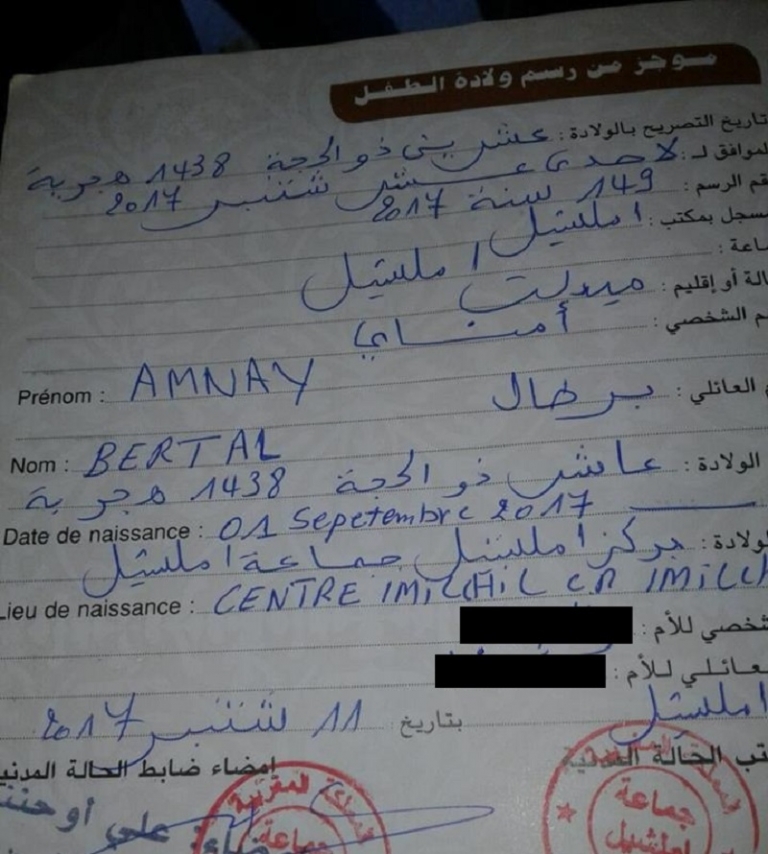 موجز من رسم ولادة الطفل
تاريخ التصريح بالولادة : عشرين ذو الحجة 1438 هجرية
لموافق لـ : لاحدى عشر شتنبر 2017
قم الرسم : 149 سنة 2017
مسجل بمكتب : املشيل
ماعة : املشيل
الة أو إقليم : ميدلت
م الشخصي : أمناي
Prénom : AMNAY
م العائلي : برطال
Nom : BERTAL
الولادة : عاشر ذو الحجة 1438 هجرية
Date de naissance : 01 Sepetembre 2017
لولادة : مركز املشيل جماعة املشيل
Lieu de naissance : CENTRE IMILCHIL CR IMILCH
شخصي للأم :
لعائلي للأم :
املشيل بتاريخ 11 شتنبر 2017
تب الحالة المدنية
إمضاء ضابط الحالة المدني
علي أو
المملكة المغربية
جماعة
جماعة
املشيل